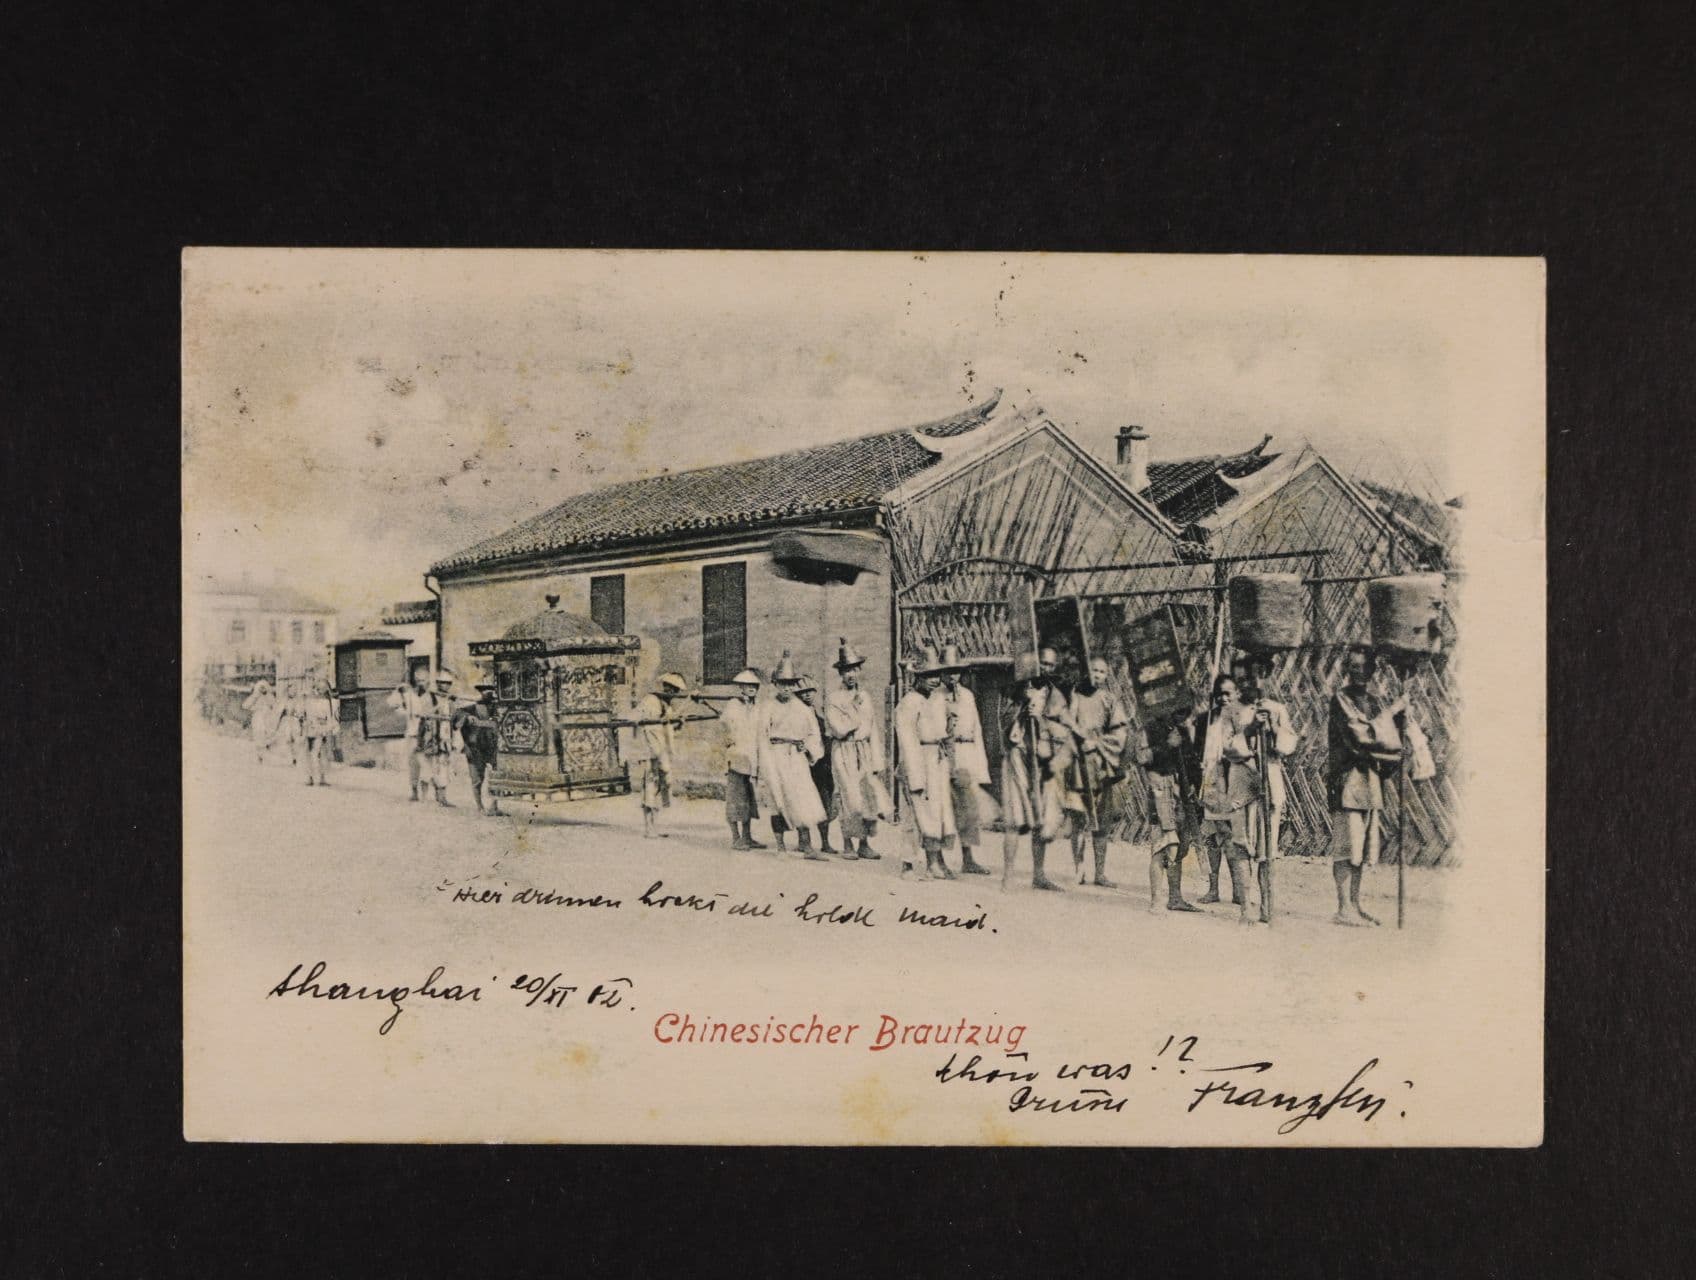 Hier drinnen hockt die holde Maid.
Shanghai 20/XI 02.
Chinesischer Brautzug
Schön was !?
Grüße